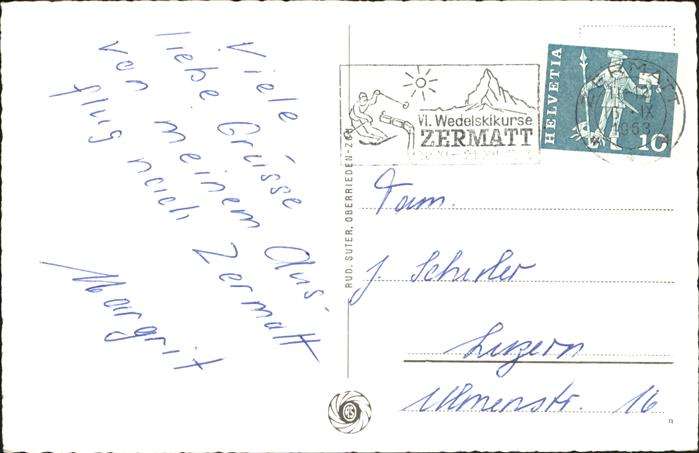 Viele
liebe Grüsse
von meinem Aus-
flug nach Zermatt
Margrit
RUD. SUTER, OBERRIEDEN-ZCH
VI. Wedelskikurse
ZERMATT
HELVETIA
10
1963
Fam.
Luzern
Ulmenstr. 16